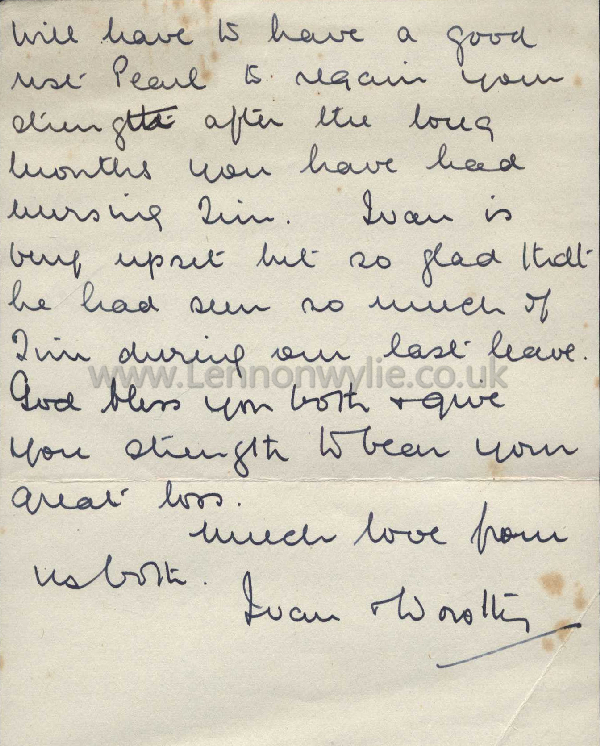 will have to have a good
rest Pearl to regain your
strength after the long
months you have had
nursing Jim. Ivan is
very upset but so glad that
he had seen so much of
Jim during our last leave.
www.Lennonwylie.co.uk
God bless you both + give
you strength to bear your
great loss.
Much love from
us both.
Ivan +